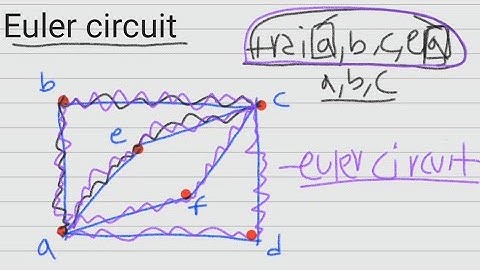 Euler circuit
trai a,b,c,e,a
a,b,c
b
c
e
- euler circuit
f
a
d